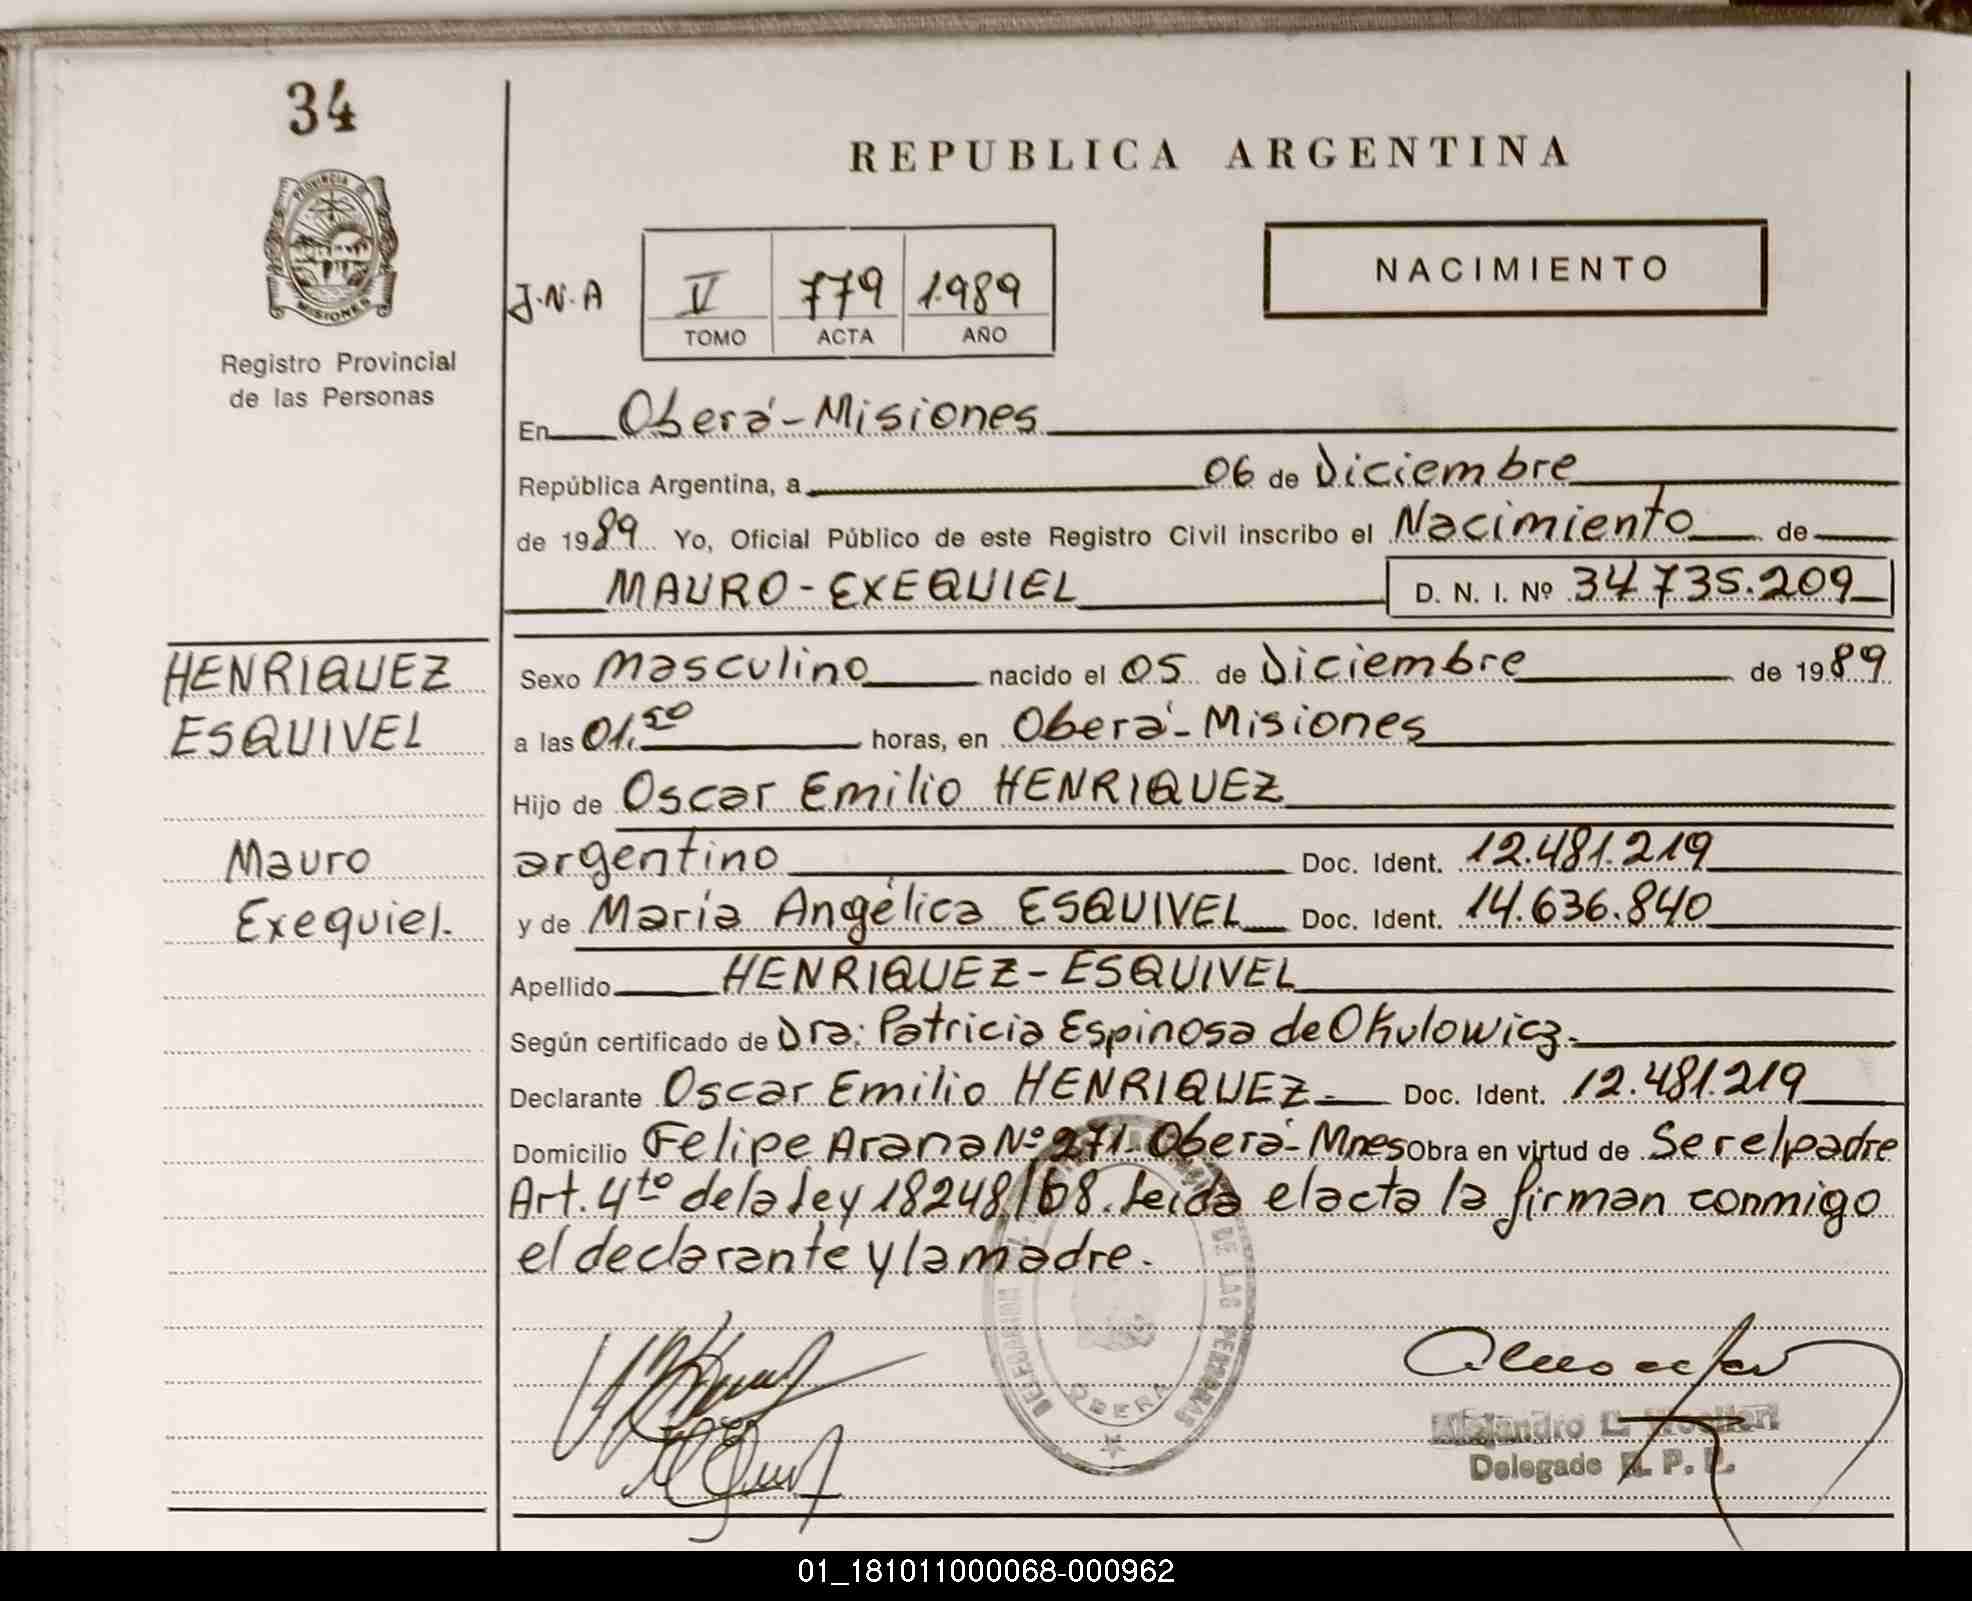 34
PROVINCIA DE
MISIONES
Registro Provincial
de las Personas
REPUBLICA ARGENTINA
NACIMIENTO
J.N.A
V 779 1.989
TOMO ACTA AÑO
En Oberá-Misiones
República Argentina, a 06 de Diciembre
de 1989 Yo, Oficial Público de este Registro Civil inscribo el Nacimiento de
MAURO-EXEQUIEL D. N. I. Nº 34.735.209
HENRIQUEZ
ESQUIVEL
Mauro
Exequiel.
Sexo Masculino nacido el 05 de Diciembre de 1989
a las 01,50 horas, en Oberá-Misiones
Hijo de Oscar Emilio HENRIQUEZ
argentino Doc. Ident. 12.481.219
y de María Angélica ESQUIVEL Doc. Ident. 14.636.840
Apellido HENRIQUEZ-ESQUIVEL
Según certificado de Dra: Patricia Espinosa de Okulowicz.
Declarante Oscar Emilio HENRIQUEZ.- Doc. Ident. 12.481.219
Domicilio Felipe Arana Nº 271-Oberá-Mnes Obra en virtud de Ser el padre
Art. 4to de la ley 18248/68. Leida el acta la firman conmigo
el declarante y la madre.
DELEGACION DE LAS PERSONAS
OBERA
Alejandro L.
Delegado R. P. P.
01_181011000068-000962